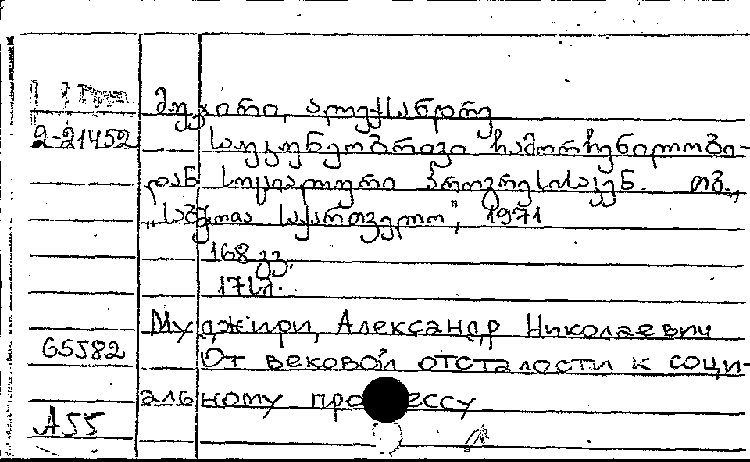 მუჯირი, ალექსანდრე
2-21452
საუკუნეობრივი ჩამორჩენილობი-
დან სოციალური პროგრესისაკენ. თბ.,
„საბჭოთა საქართველო", 1971
168 გვ.
171л.
Муджири, Александр Николаевич
65J82
От вековой отсталости к соци-
альному про ессу
A55